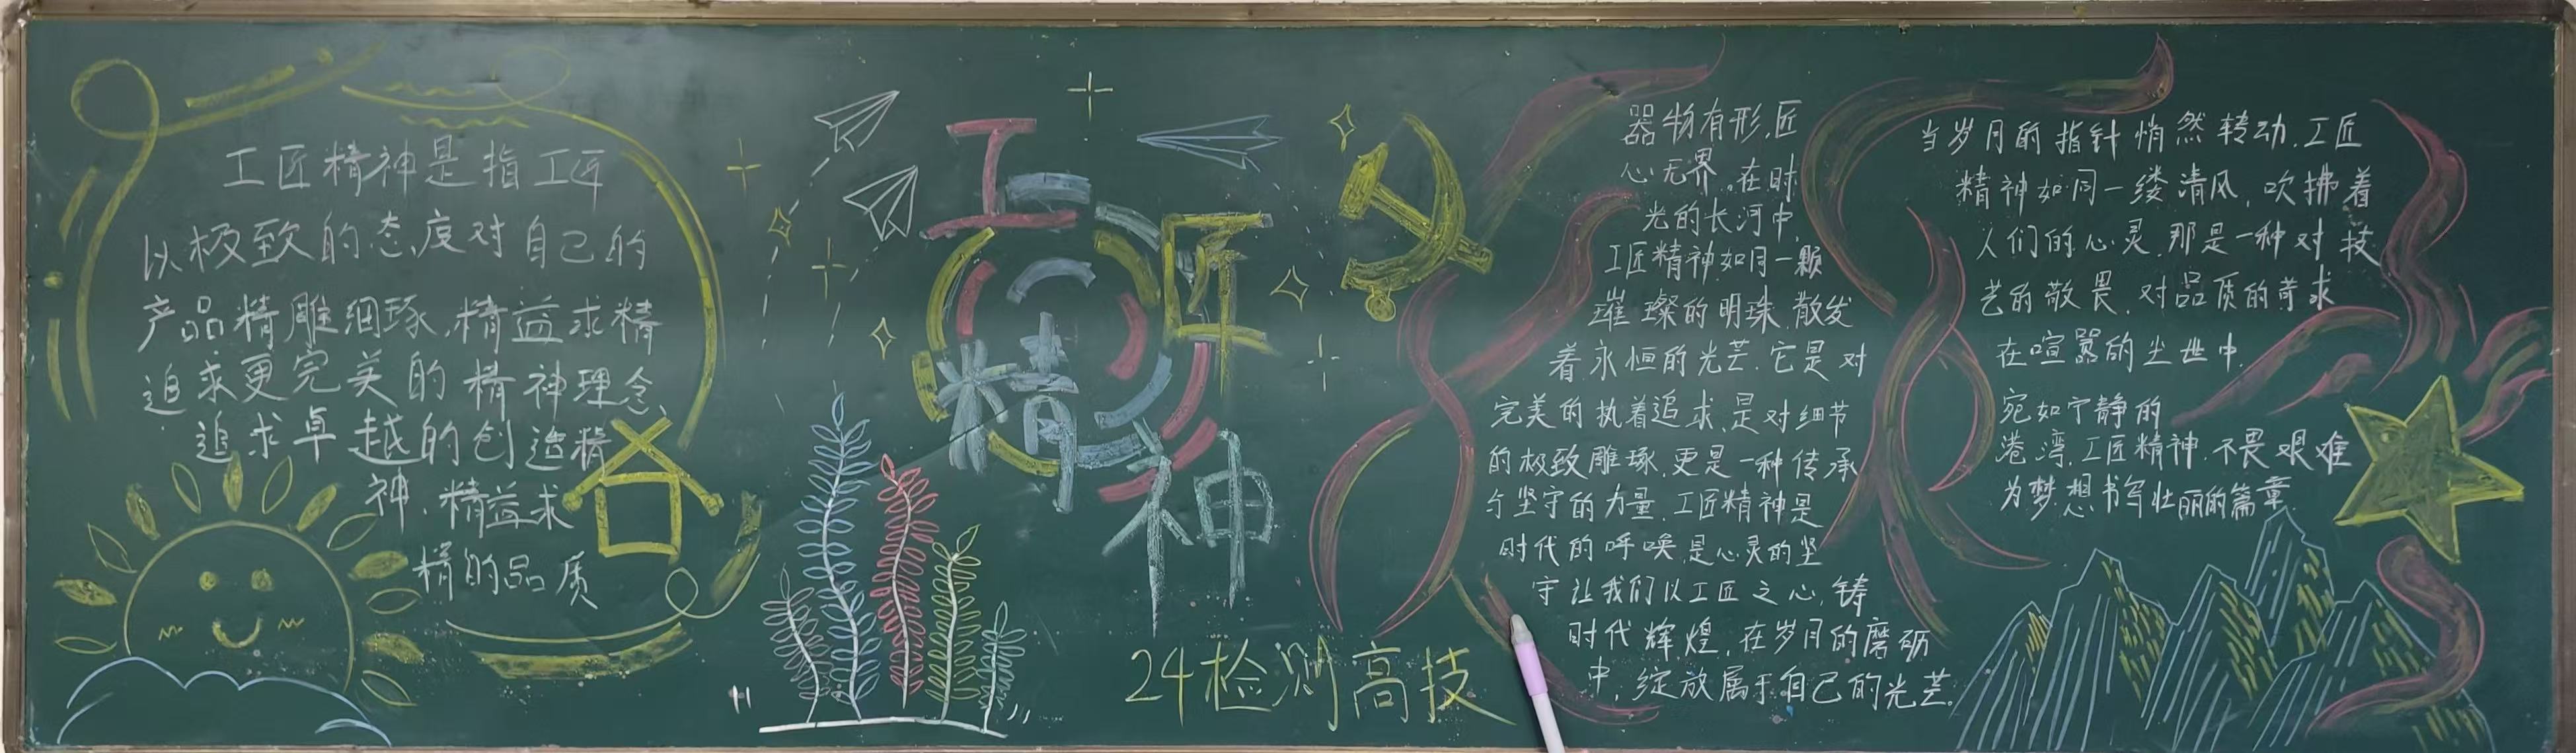 工匠精神是指工匠
以极致的态度对自己的
产品精雕细琢,精益求精
追求更完美的精神理念,
追求卓越的创造精
神,精益求
精的品质
工匠精神
24检测高技
器物有形,匠
心无界.在时
光的长河中,
工匠精神如同一颗
璀璨的明珠,散发
着永恒的光芒.它是对
完美的执着追求,是对细节
的极致雕琢,更是一种传承
与坚守的力量.工匠精神是
时代的呼唤,是心灵的坚
守让我们以工匠之心,铸
时代辉煌,在岁月的磨砺
中,绽放属于自己的光芒.
当岁月的指针悄然转动,工匠
精神如同一缕清风,吹拂着
人们的心灵,那是一种对技
艺的敬畏,对品质的苛求
在喧嚣的尘世中,
宛如宁静的
港湾,工匠精神,不畏艰难
为梦想书写壮丽的篇章.